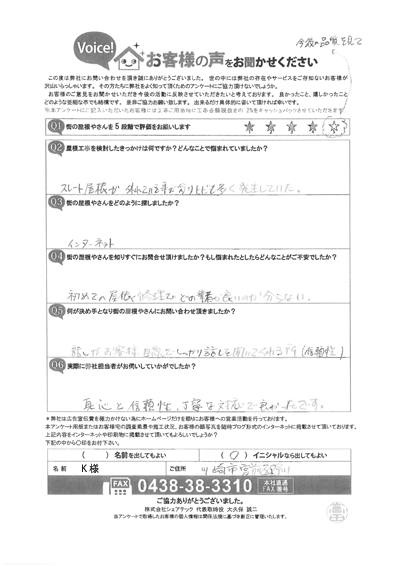 今後の品質を見て
Voice!
お客様の声をお聞かせください
この度は弊社にお問い合わせを頂き誠にありがとうございました。 世の中には弊社の存在やサービスをご存知ないお客様が
沢山いらっしゃいます。その方たちに弊社をよく知って頂くためのアンケートにご協力頂けないでしょうか。
お客様のご意見をお聞かせいただき今後の活動に反映させていただきたいと考えております。良かったこと、嬉しかったこと
どのような些細な事でも結構です。是非ご協力お願い致します。出来るだけ具体的に書いて頂ければ幸いです。
Q1 街の屋根やさんを5段階で評価をお願いします ☆ ☆ ☆ ☆ ☆
Q2 屋根工事を検討したきっかけは何ですか?どんなことで悩まれていましたか?
スレート屋根が
Q3 街の屋根やさんをどのように探しましたか?
インターネット
Q4 街の屋根やさんを知りすぐにお問合せ頂けましたか?もし悩まれたとしたらどんなことがご不安でしたか?
初めての屋根修理で どの業者が良いのか分らない。
Q5 何が決め手となり街の屋根やさんにお問い合わせ頂きましたか?
(信頼性)
Q6 実際に弊社担当者がお伺いしていかがでしたか?
真心と信頼性、丁寧な対応で良かったです。
*弊社は広告宣伝費を極力かけない為にホームページだけを頼りにお客様への営業活動を行っております。
本アンケート用紙またはお客様宅の調査風景や施工状況、お客様の顔写真を随時ブログ形式でインターネットに掲載させて頂いております。
上記内容をインターネットや印刷物に掲載させて頂いてもよろしいでしょうか?
下記の中から○印をお付下さい。
( ) 名前を出してもよい ( ○ ) イニシャルなら出してもよい
名前 K様 ご住所 川崎市宮前区
FAX 0438-38-3310 本社直通 FAX番号
ご協力ありがとうございました。
株式会社シェアテック 代表取締役 大久保 誠二
当アンケートで取得したお客様の個人情報は関係法規に基づき厳正に管理いたします。